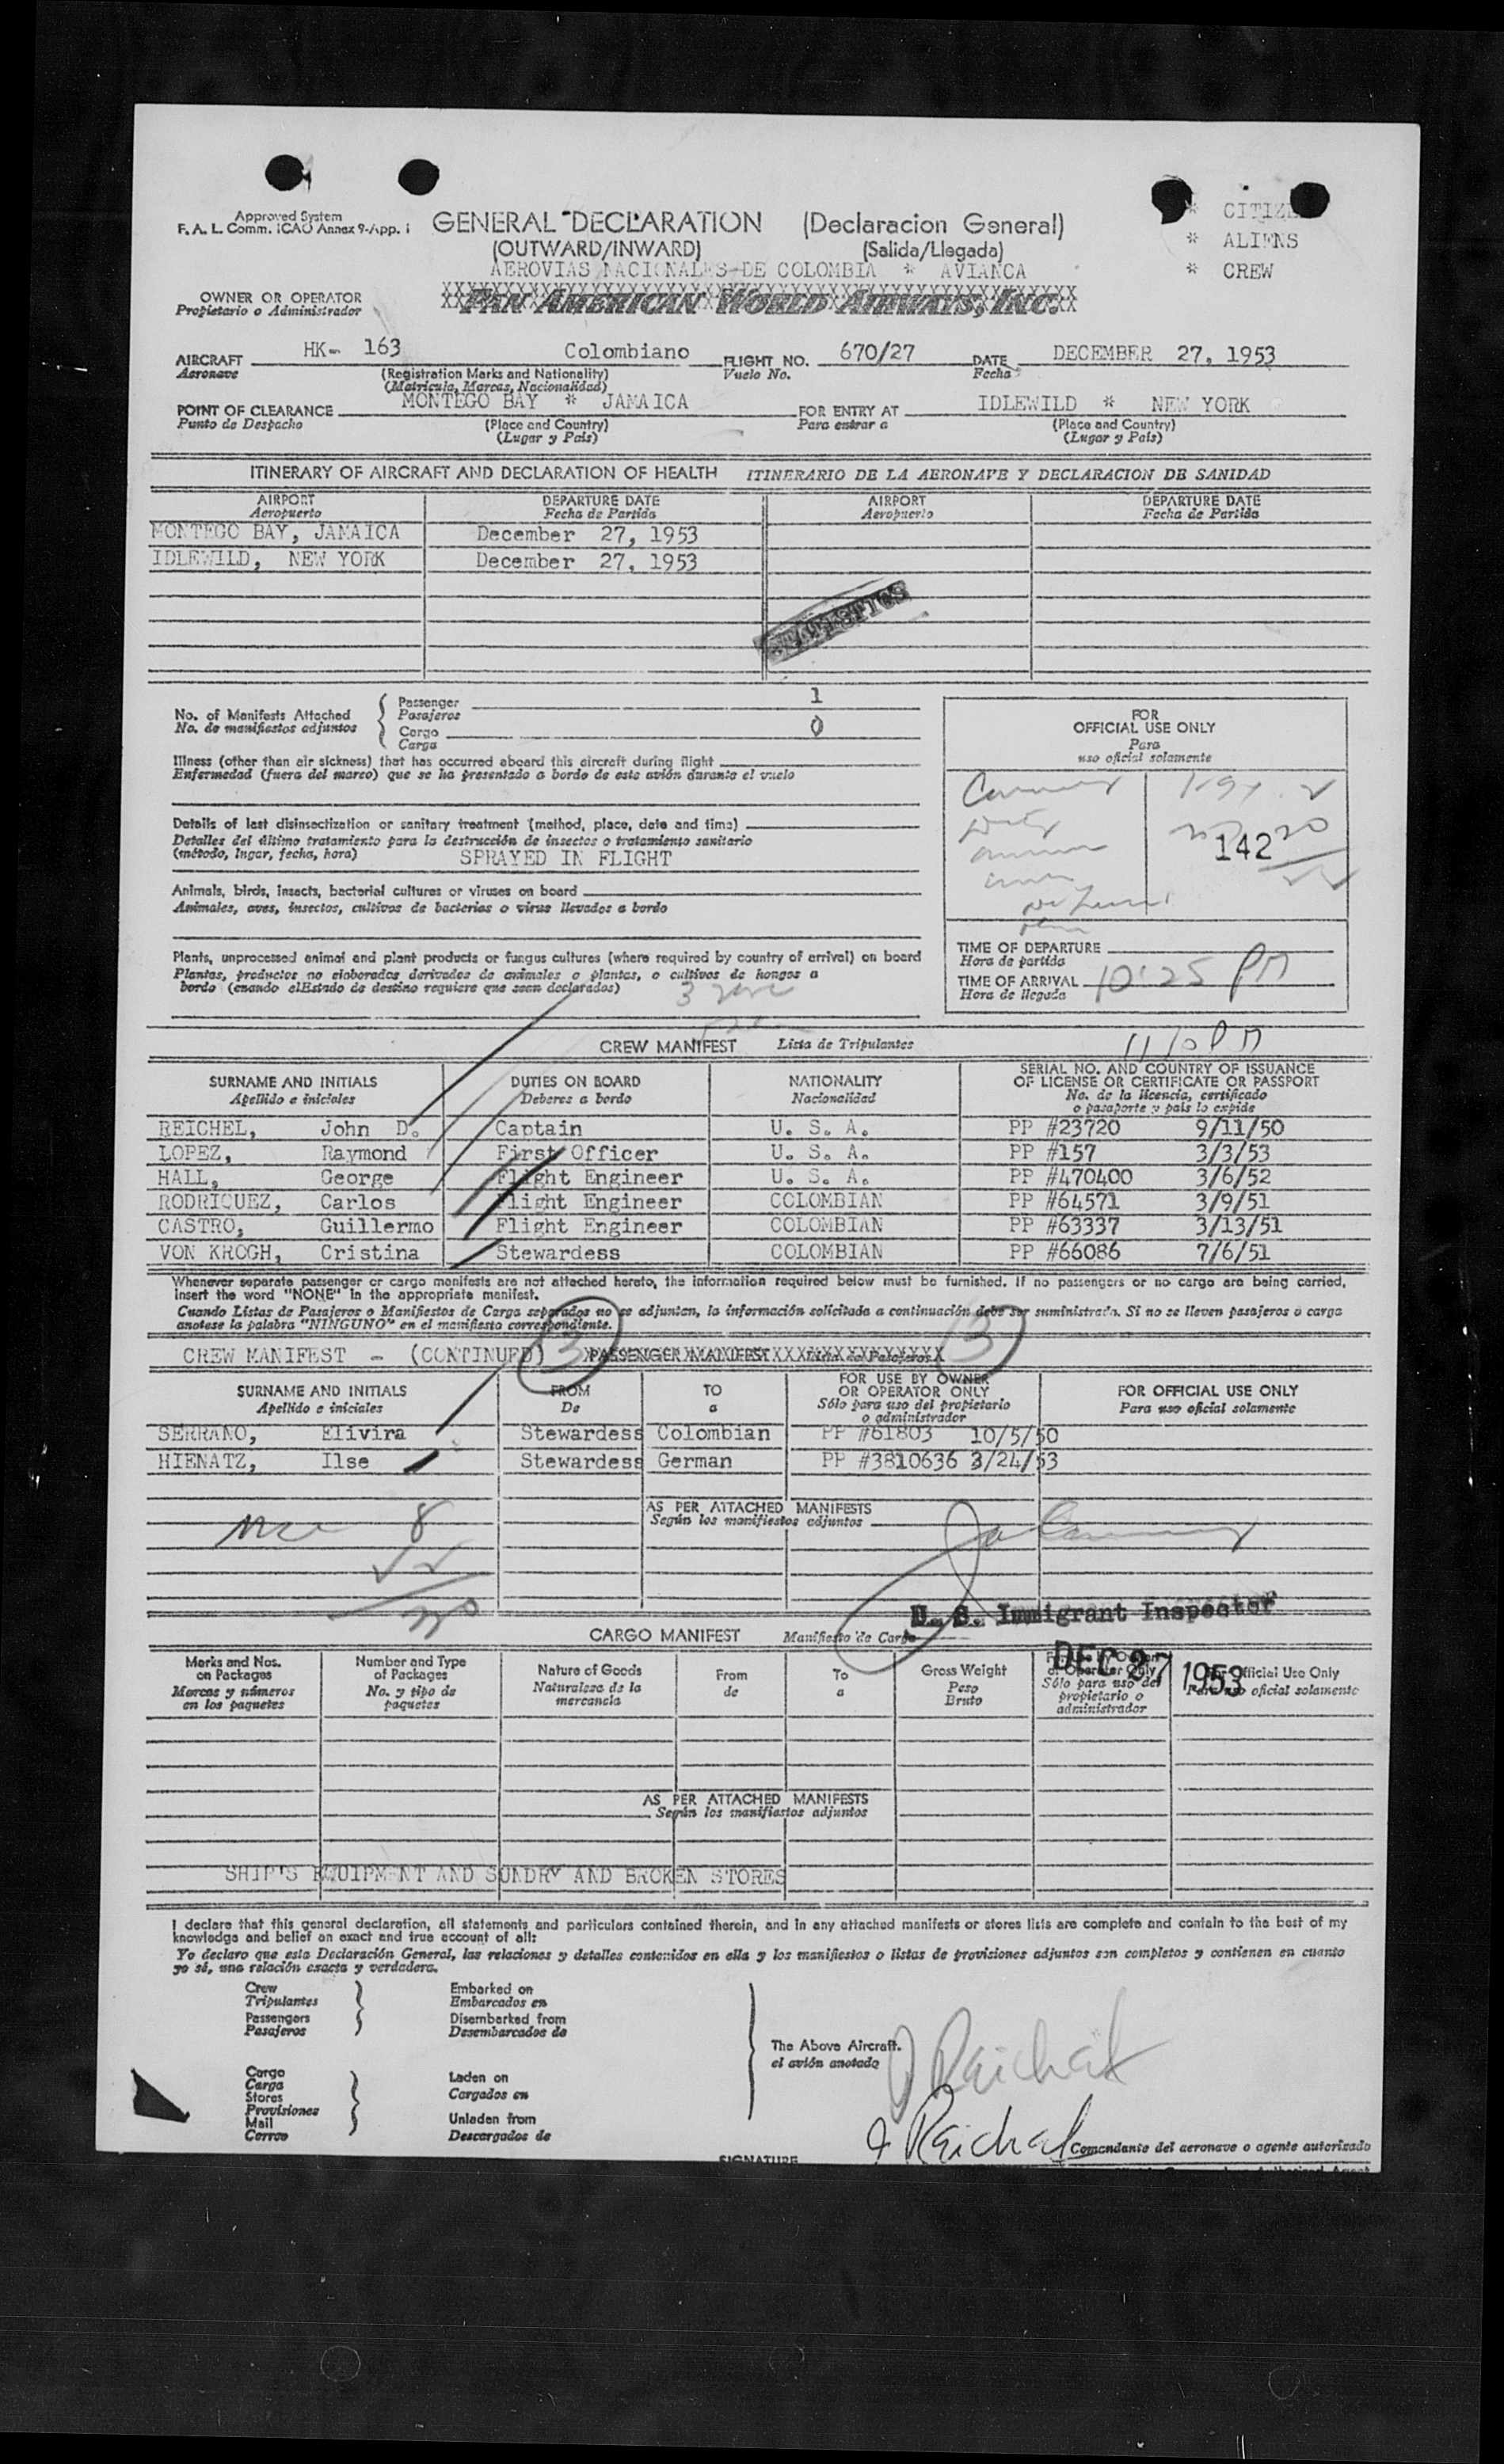 Approved System
F. A. L. Comm. ICAO Annex 9-App. 1
GENERAL DECLARATION (Declaracion General)
(OUTWARD/INWARD) (Salida/Llegada)
AEROVIAS NACIONALES DE COLOMBIA * AVIANCA
* ALIENS
* CREW
OWNER OR OPERATOR
Propietario o Administrador
PAN AMERICAN WORLD AIRWAYS, INC.
AIRCRAFT HK- 163 Colombiano FLIGHT NO. 670/27 DATE DECEMBER 27, 1953
Aeronave (Registration Marks and Nationality) Vuelo No. Fecha
(Matricula, Marcas, Nacionalidad)
POINT OF CLEARANCE MONTEGO BAY * JAMAICA FOR ENTRY AT IDLEWILD * NEW YORK
Punto de Despacho (Place and Country) Para entrar a (Place and Country)
(Lugar y País) (Lugar y País)
ITINERARY OF AIRCRAFT AND DECLARATION OF HEALTH ITINERARIO DE LA AERONAVE Y DECLARACION DE SANIDAD
AIRPORT DEPARTURE DATE AIRPORT DEPARTURE DATE
Aeropuerto Fecha de Partida Aeropuerto Fecha de Partida
MONTEGO BAY, JAMAICA December 27, 1953
IDLEWILD, NEW YORK December 27, 1953
No. of Manifests Attached
No. de manifiestos adjuntos
Passenger 1
Pasajeros
Cargo 0
Carga
FOR
OFFICIAL USE ONLY
Para
uso oficial solamente
142
Illness (other than air sickness) that has occurred aboard this aircraft during flight
Enfermedad (fuera del mareo) que se ha presentado a bordo de este avión durante el vuelo
Details of last disinsectization or sanitary treatment (method, place, date and time)
Detalles del último tratamiento para la destrucción de insectos o tratamiento sanitario
(método, lugar, fecha, hora) SPRAYED IN FLIGHT
Animals, birds, insects, bacterial cultures or viruses on board
Animales, aves, insectos, cultivos de bacterias o virus llevados a bordo
Plants, unprocessed animal and plant products or fungus cultures (where required by country of arrival) on board
Plantas, productos no elaborados derivados de animales o plantas, o cultivos de hongos a
bordo (cuando el Estado de destino requiere que sean declarados)
TIME OF DEPARTURE
Hora de partida
TIME OF ARRIVAL 10:25 PM
Hora de llegada
CREW MANIFEST Lista de Tripulantes
SURNAME AND INITIALS DUTIES ON BOARD NATIONALITY SERIAL NO. AND COUNTRY OF ISSUANCE
OF LICENSE OR CERTIFICATE OR PASSPORT
Apellido e iniciales Deberes a bordo Nacionalidad No. de la licencia, certificado
o pasaporte y país lo expide
REICHEL, John D. Captain U. S. A. PP #23720 9/11/50
LOPEZ, Raymond First Officer U. S. A. PP #157 3/3/53
HALL, George Flight Engineer U. S. A. PP #470400 3/6/52
RODRIQUEZ, Carlos Flight Engineer COLOMBIAN PP #64571 3/9/51
CASTRO, Guillermo Flight Engineer COLOMBIAN PP #63337 3/13/51
VON KROGH, Cristina Stewardess COLOMBIAN PP #66086 7/6/51
Whenever separate passenger or cargo manifests are not attached hereto, the information required below must be furnished. If no passengers or no cargo are being carried,
insert the word "NONE" in the appropriate manifest.
Cuando Listas de Pasajeros o Manifiestos de Carga separados no se adjuntan, la información solicitada a continuación debe ser suministrada. Si no se lleven pasajeros o carga
anotese la palabra "NINGUNO" en el manifiesto correspondiente.
CREW MANIFEST - (CONTINUED) 3 PASSENGER MANIFEST 3
SURNAME AND INITIALS FROM TO FOR USE BY OWNER
OR OPERATOR ONLY FOR OFFICIAL USE ONLY
Apellido e iniciales De a Sólo para uso del propietario
o administrador Para uso oficial solamente
SERRANO, Elivira Stewardess Colombian PP #61803 10/5/50
HIENATZ, Ilse Stewardess German PP #3810636 3/24/53
AS PER ATTACHED MANIFESTS
Según los manifiestos adjuntos
8
U. S. Immigrant Inspector
DEC 27 1953
CARGO MANIFEST Manifiesto de Carga
Marks and Nos.
on Packages
Marcas y números
en los paquetes
Number and Type
of Packages
No. y tipo de
paquetes
Nature of Goods
Naturaleza de la
mercancía
From
de
To
a
Gross Weight
Peso
Bruto
For Use by Owner
or Operator Only
Sólo para uso del
propietario o
administrador
For Official Use Only
Para uso oficial solamente
AS PER ATTACHED MANIFESTS
Según los manifiestos adjuntos
SHIP'S EQUIPMENT AND SUNDRY AND BROKEN STORES
I declare that this general declaration, all statements and particulars contained therein, and in any attached manifests or stores lists are complete and contain to the best of my
knowledge and belief an exact and true account of all:
Yo declaro que esta Declaración General, las relaciones y detalles contenidos en ella y los manifiestos o listas de provisiones adjuntos son completos y contienen en cuanto
yo sé, una relación exacta y verdadera.
Crew
Tripulantes
Passengers
Pasajeros
Embarked on
Embarcados en
Disembarked from
Desembarcados de
The Above Aircraft.
el avión anotado
Cargo
Carga
Stores
Provisiones
Mail
Correo
Laden on
Cargados en
Unladen from
Descargados de
J Reichel
J Reichel
Comandante del aeronave o agente autorizado
SIGNATURE